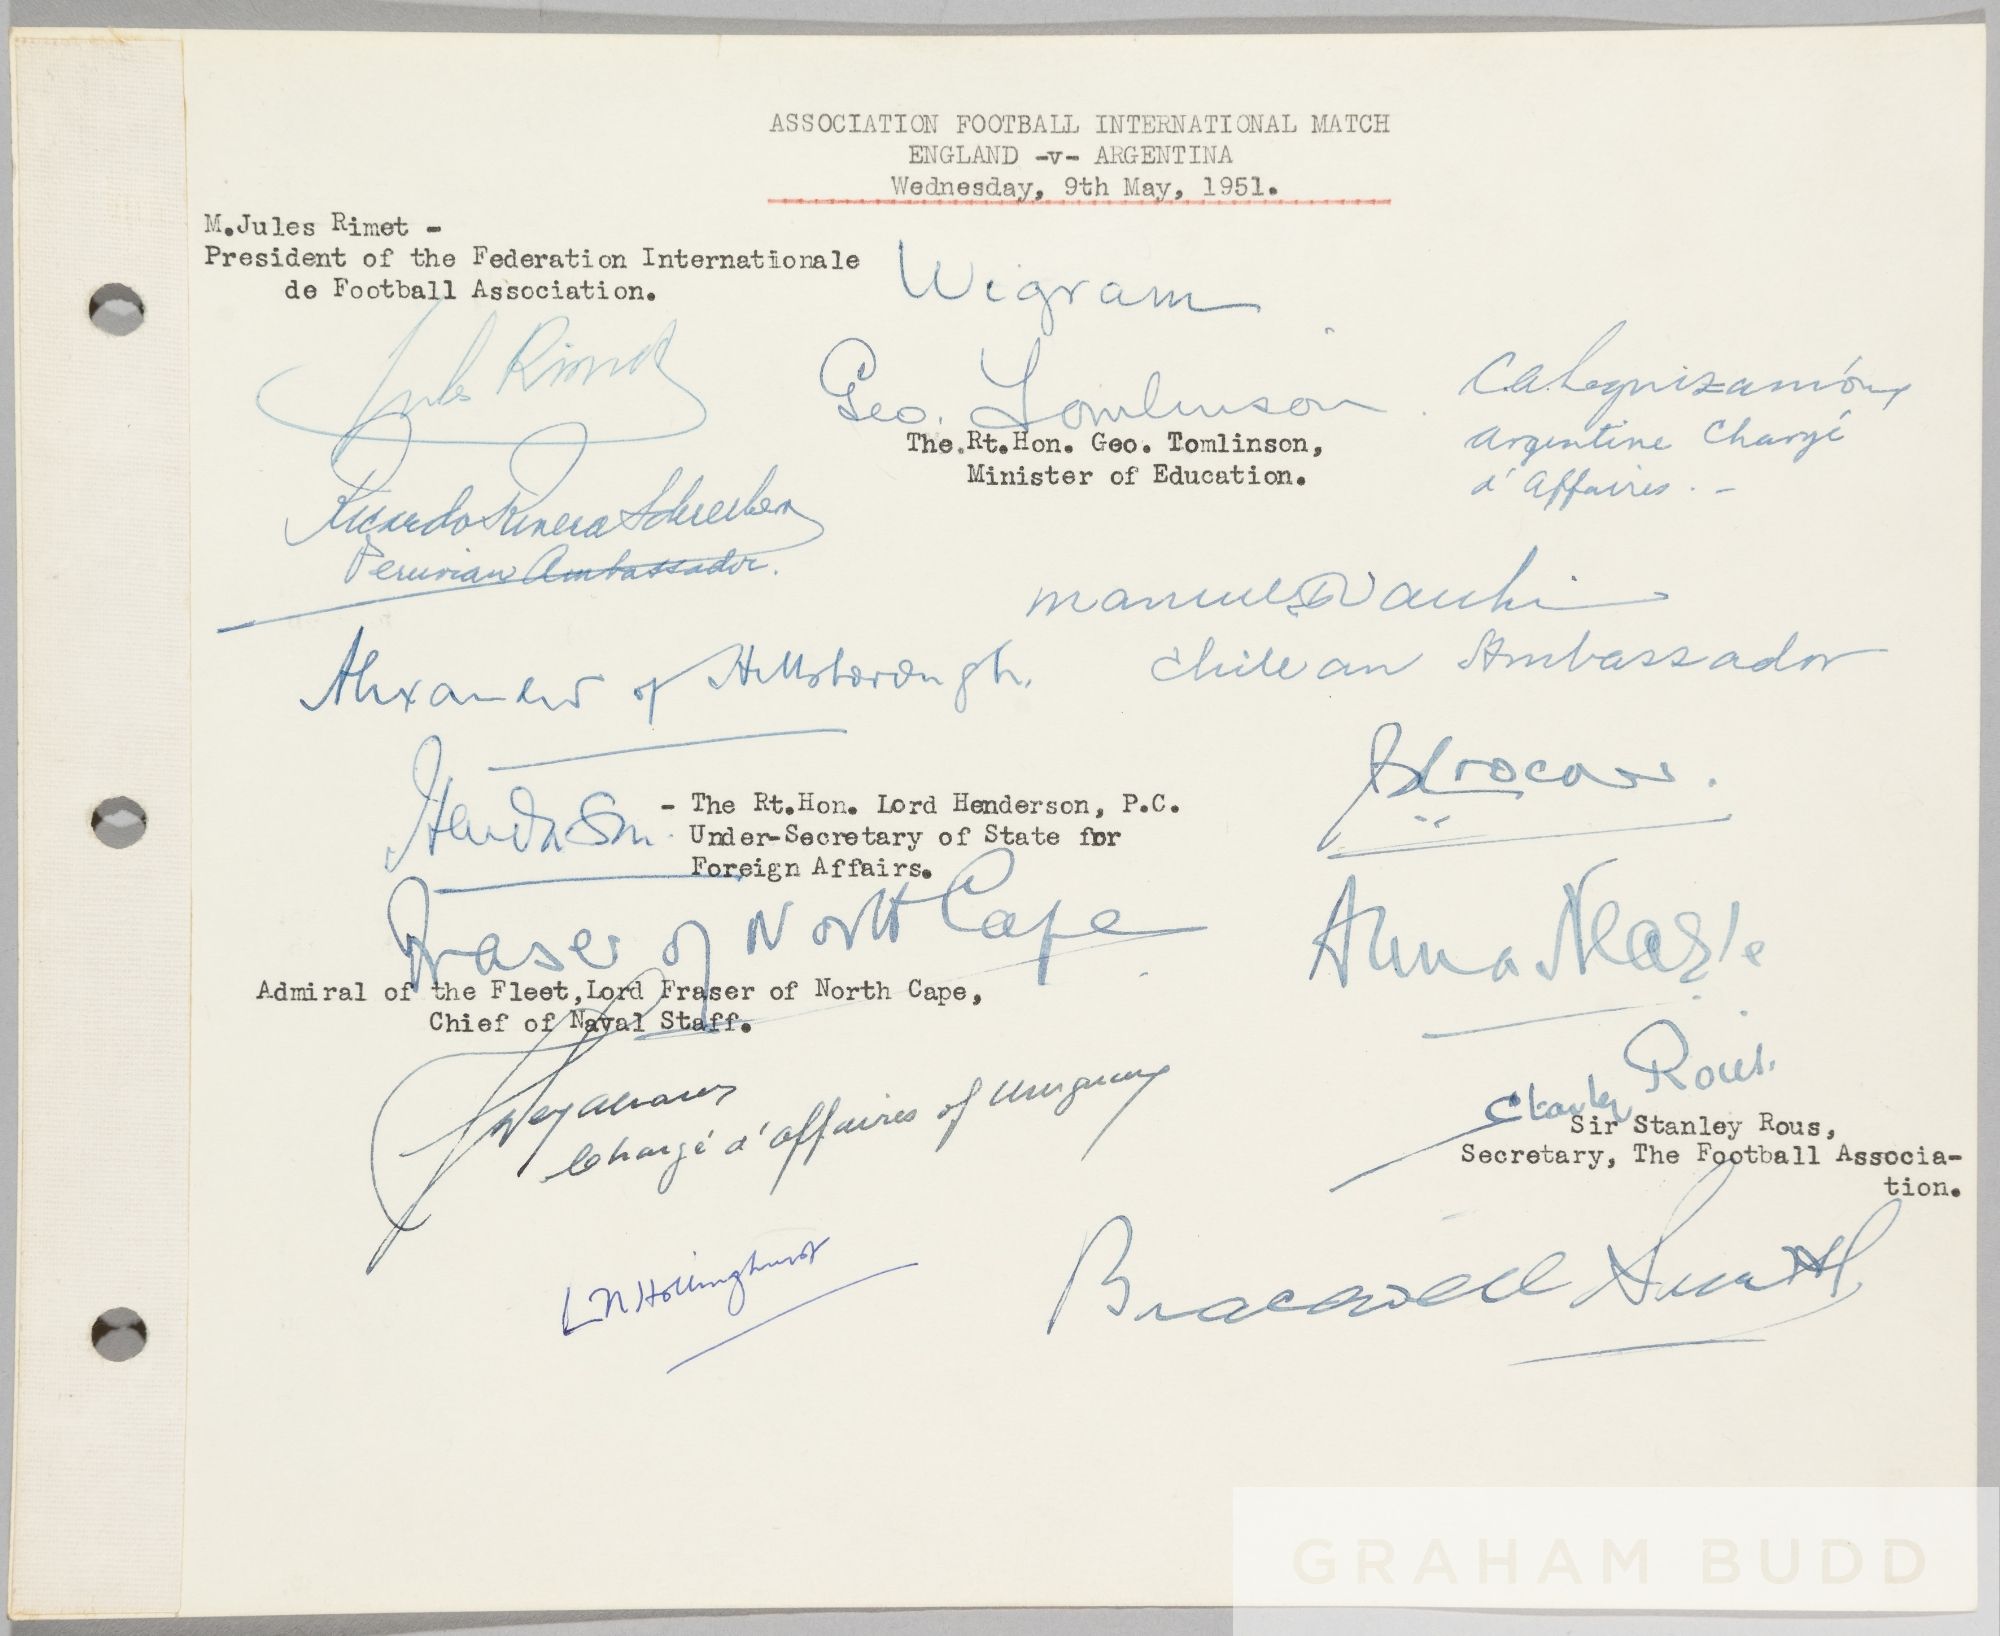 ASSOCIATION FOOTBALL INTERNATIONAL MATCH
ENGLAND -v- ARGENTINA
Wednesday, 9th May, 1951.
M.Jules Rimet -
President of the Federation Internationale
de Football Association.
Wigram
Jules Rimet
Geo. Tomlinson
The.Rt.Hon. Geo. Tomlinson,
Minister of Education.
Argentine Chargé
d'Affaires. -
Ricardo Rivera Schreiber
Peruvian Ambassador.
Manuel
Chilean Ambassador
Alexander of Hillsborough.
Henderson.
- The Rt.Hon. Lord Henderson, P.C.
Under-Secretary of State for
Foreign Affairs.
Fraser of North Cape
Admiral of the Fleet,Lord Fraser of North Cape,
Chief of Naval Staff.
Anna Neagle
Chargé d'affaires of Uruguay
Stanley Rous.
Sir Stanley Rous,
Secretary, The Football Associa-
tion.
L N Hollinghurst
Bracewell Smith
GRAHAM BUDD